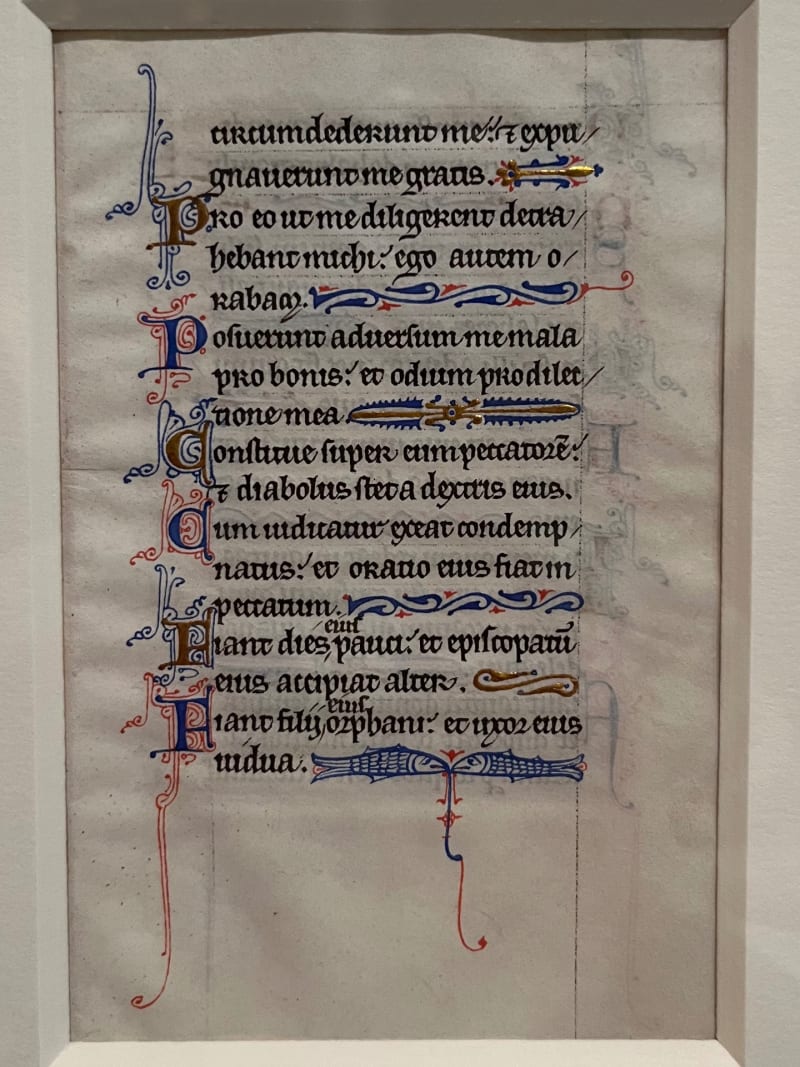 circumdederunt me: ⁊ expu/
gnauerunt me gratis.
Pro eo ut me diligerent detra/
hebant michi: ego autem o/
rabam.
Posuerunt aduersum me mala
pro bonis: et odium pro dilec/
tione mea
Constitue super eum peccatorē:
⁊ diabolus stet a dextris eius.
Cum iudicatur exeat condemp/
natus: et oratio eius fiat in
peccatum.
eius
Fiant dies pauci: et episcopatū
eius accipiat alter.
eius
Fiant filij orphani: et uxor eius
uidua.